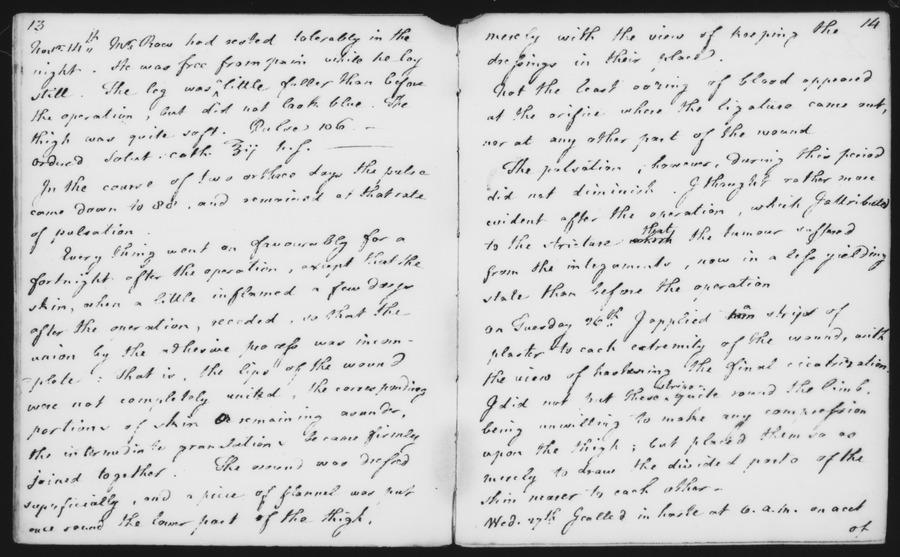 13
Novr. 14th Mr Rows had rested tolerably in the
night. He was free from pain while he lay
still. The leg was ^ little fuller than before
the operation, but did not look blue. The
thigh was quite soft. Pulse 106. —
Ordered Solut. cath. ʒij h.s. —
In the course of two or three days the pulse
came down to 80, and remained at that rate
of pulsation.
Every thing went on favourably for a
fortnight after the operation, except that the
skin, when a little inflamed a few days
after the operation, receded, so that the
union by the adhesive process was incom-
-plete: that is, the lips of the wound
were not completely united, the corresponding
portions of skin remaining asunder,
the intermediate granulations became firmly
joined together. The wound was dressed
superficially, and a piece of flannel was put
once round the lower part of the thigh,
14
merely with the view of keeping the
dressings in their places.
Not the least oozing of blood appeared
at the orifice where the ligatures came out,
nor at any other part of the wound
The pulsation, however, during this period
did not diminish. I thought rather more
evident after the operation, which I attributed
to the stricture which that the tumour suffered
from the integuments, now in a less yielding
state than before the operation
On Tuesday 26th I applied strips of
plaster to each extremity of the wound, with
the view of hastening the final cicatrization.
I did not put these strips quite round the limb,
being unwilling to make any compression
upon the thigh; but placed them so as
merely to draw the divided parts of the
skin nearer to each other. —
Wed. 27th I called in haste at 6. a.m. on acct
of